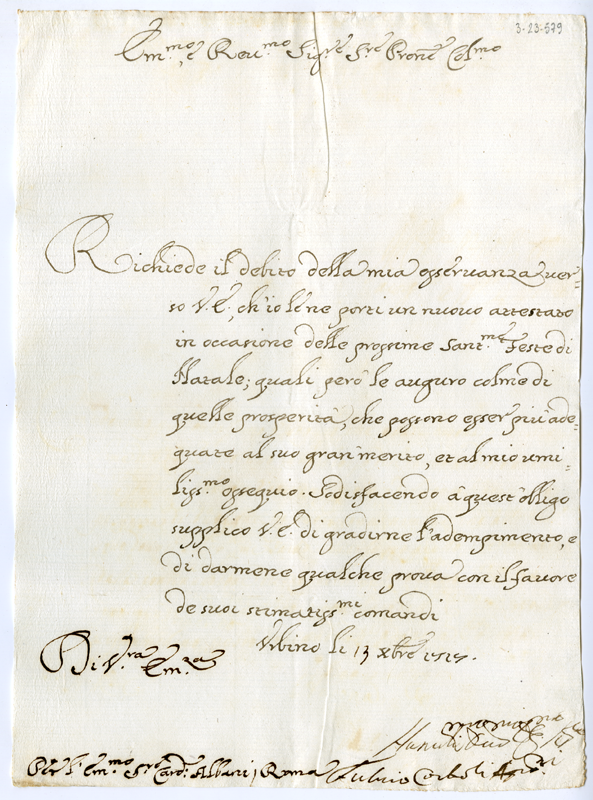 3-23-579
Em.mo, e Reu.mo Sig.re S.re Prone Col.mo
Richiede il debito della mia osseruanza uer=
so V.E., ch'io le ne porti un nuouo attestato
in occasione delle prossime Sant.me Feste di
Natale; quali però le auguro colme di
quelle prosperità, che possono esser più ade=
quate al suo gran merito, et al mio umi=
liss.mo ossequio. Sodisfacendo à quest'obligo
supplico V.E. di gradirne l'adempimento, e
di darmene qualche proua con il fauore
de suoi stimatiss.mi comandi
Vrbino li 13 xbre 1717.
Di V.ra Em.za
Fuluio
S.re Card. Albani, Roma